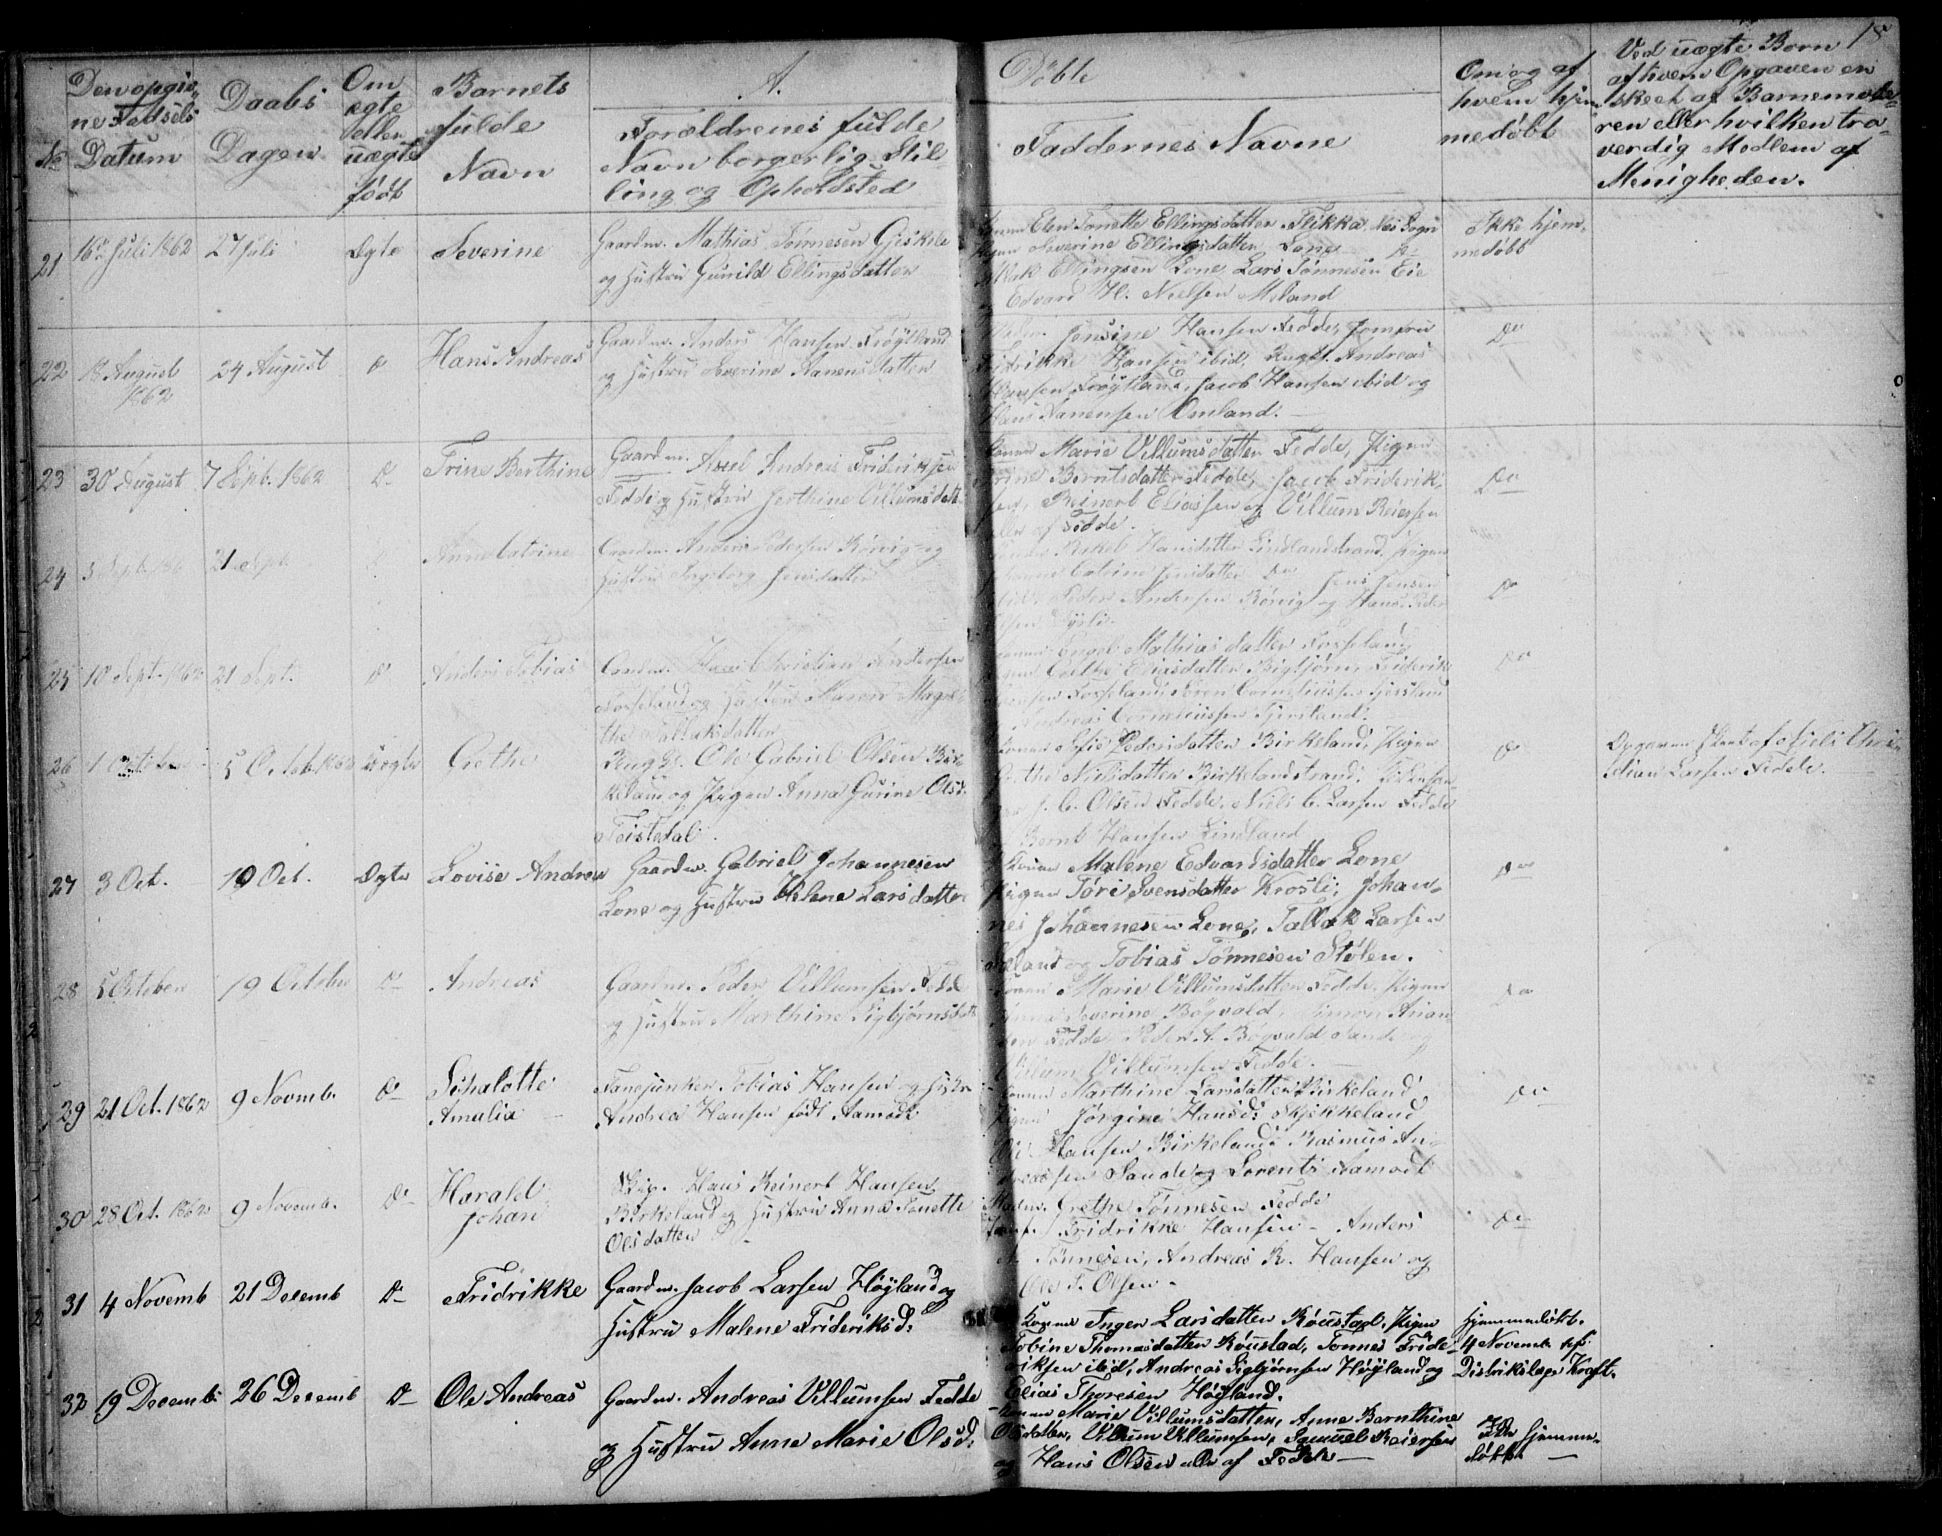 18
A. Döbte
No
Den opgiv-
ne Fødsels
Datum
Daabs
Dagen
Om
ægte
eller
uægte
født
Barnets
fulde
Navn
Forældrenes fulde
Navn borgerlig Stil-
ling og Opholdsted
Faddernes Navne
Om og af
hvem hjem
medøbt
Ved uægte Børn
af hvem Opgaven er
skeet af Barnemode-
ren eller hvilken tro-
værdig Medlem af
Menigheden.
21 16de Juli 1862 27 Juli Ægte Severine
Gaardm. Mathias Tønnesen Gjeskele
og Hustru Gunild Ellingsdatter
Elen Tonette Ellingsdatter Flikka Nes Sogn
Severine Ellingsdatter Lone
Ellingsen Lone, Lars Tønnesen Eie
Edvard H. Nielsen Meland
Ikke hjem-
medøbt
22 18 August
1862
24 August Do Hans Andreas
Gaardm. Anders Hansen Frøytland
og Hustru Severine Aanensdatter
Jonsine Hansen Fedde, Jomfru
Fridrikke Hansen ibid, Ungk. Andreas
Hansen Frøytland, Jacob Hansen ibid og
Hans Aanensen Omland.
Do
23 30 August 7 Sept. 1862 Do Trine Berthine
Gaardm. Axel Andreas Frideriksen
Fedde og Hustru Jerthine Villumsdatt
Konen Marie Villumsdatter Fedde, Pigen
Trine Berntsdatter Fedde, Jacob Friderik-
sen, Reinert Eliassen og Villum Reiersen
alle af Fedde.
Do
24 3 Sept. 21 Sept. Anne Catrine
Gaardm. Anders Pedersen Rørvig og
Hustru Ingeborg Jensdatter
Hansdatter Lindlandstrand, Pigen
Catrine Jensdatter Do Jens Jensen
ibid, Peder Andersen Rørvig og Hans Peder
Do
25 10 Sept. 1862 21 Sept. Do Anders Tobias
Gaardm. Hans Christian Andersen
Fosseland og Hustru Maren Magre-
the Tallaksdatter
Engel Mathiasdatter Fosseland,
Eliasdatter Bigbjørn, Friderik
Fosseland, Søren Corneliussen
Andreas Corneliussen
Do
26 1 October 5 Octob. 1862 Uægte Grethe
Ungk. Ole Gabriel Olsen Birk-
keland og Pigen Anna Gurine Olsd.
Feistedal.
Konen Sofie Pedersdatter Birkeland, Pigen
Grethe Nielsdatter Birkelandstrand,
J. C. Olsen Fedde, Niels C. Larsen Fedde
Bernt Hansen Lindland
Do
Opgaven skeet af Niels Chri-
stian Larsen Fedde.
27 3 Oct. 19 Oct. Ægte Lovise Andrea
Gaardm. Gabriel Johannesen
Lone og Hustru Helene Larsdatter
Konen Malene Edvardsdatter Lone
Pigen Tori Svensdatter Krosli, Johan-
nes Johannesen Lone, Tallak Larsen
og Tobias Tønnesen Stølen.
Do
28 5 October 19 October Do Andreas
Gaardm. Peder Villumsen Fedde
og Hustru Marthine Sigbjørnsdatt
Konen Marie Villumsdatter Fedde, Pigen
Anna Severine Bøgvald, Simon Anan-
sen Fedde, Peder A. Bøgvald Sande og
Villum Villumsen Fedde.
Do
29 21 Oct. 1862 9 Novmb. Do Schalotte
Amalia
Fanejunker Tobias Hansen og Hustru
Andrea Hansen født Aamodt
Konen Marthine Larsdatter Birkeland,
Pigen Jørgine Hansd: Skjekkeland,
Ole Hansen Birkeland, Rasmus An-
dreassen Sande og Lorents Aamodt
Do
30 28 Oct. 1862 9 Novemb. Do Harald
Johan
Skip. Hans Reinert Hansen
Birkeland og Hustru Anna Tonette
Olsdatter
Madm. Grethe Tønnesen Fedde
Jomf. Fridrikke Hansen - Anders
Tønnesen, Andreas R. Hansen og
Ole T. Olsen
Do
31 4 Novemb 21 Decemb Do Fridrikke
Gaardm. Jacob Larsen Høyland og
Hustru Malene Frideriksd:
Konen Inger Larsdatter Røustad, Pigen
Tobine Thomasdatter Røustad, Tonnes Fride-
riksen ibid, Andreas Sigbjørnsen Høyland og
Elias Thoresen Høyland.
Hjemmedøbt.
4 Novemb. af
Distriktslæge Kraft.
32 19 Decemb. 26 Decemb Do Ole Andreas
Gaardm. Andreas Villumsen Fedde
og Hustru Anne Marie Olsd:
Konen Marie Villumsdatter, Anne Barnthine
Olsdatter, Villum Villumsen, Samuel Reiersen
og Hans Olsen alle af Fedde
Ikke hjemme-
døbt